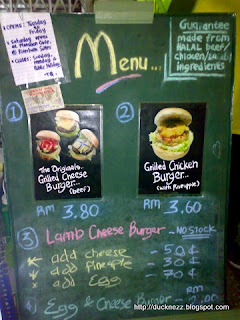 OPENS: Tuesday
to
Friday
Saturday
Closes: Sunday,
Monday &
Public Holiday
Menu...
Guarantee
made from
HALAL beef/
chicken/
ingredients
1
2
The Original
Grilled Cheese
Burger...
(beef)
Grilled Chicken
Burger...
(with Pineapple)
RM 3.80
RM 3.60
3 Lamb Cheese Burger - NO STOCK
add cheese - 50¢
add Pineapple - 30¢
add Egg - 70¢
Egg & Cheese Burger - RM
http://ducknezz.blogspot.com